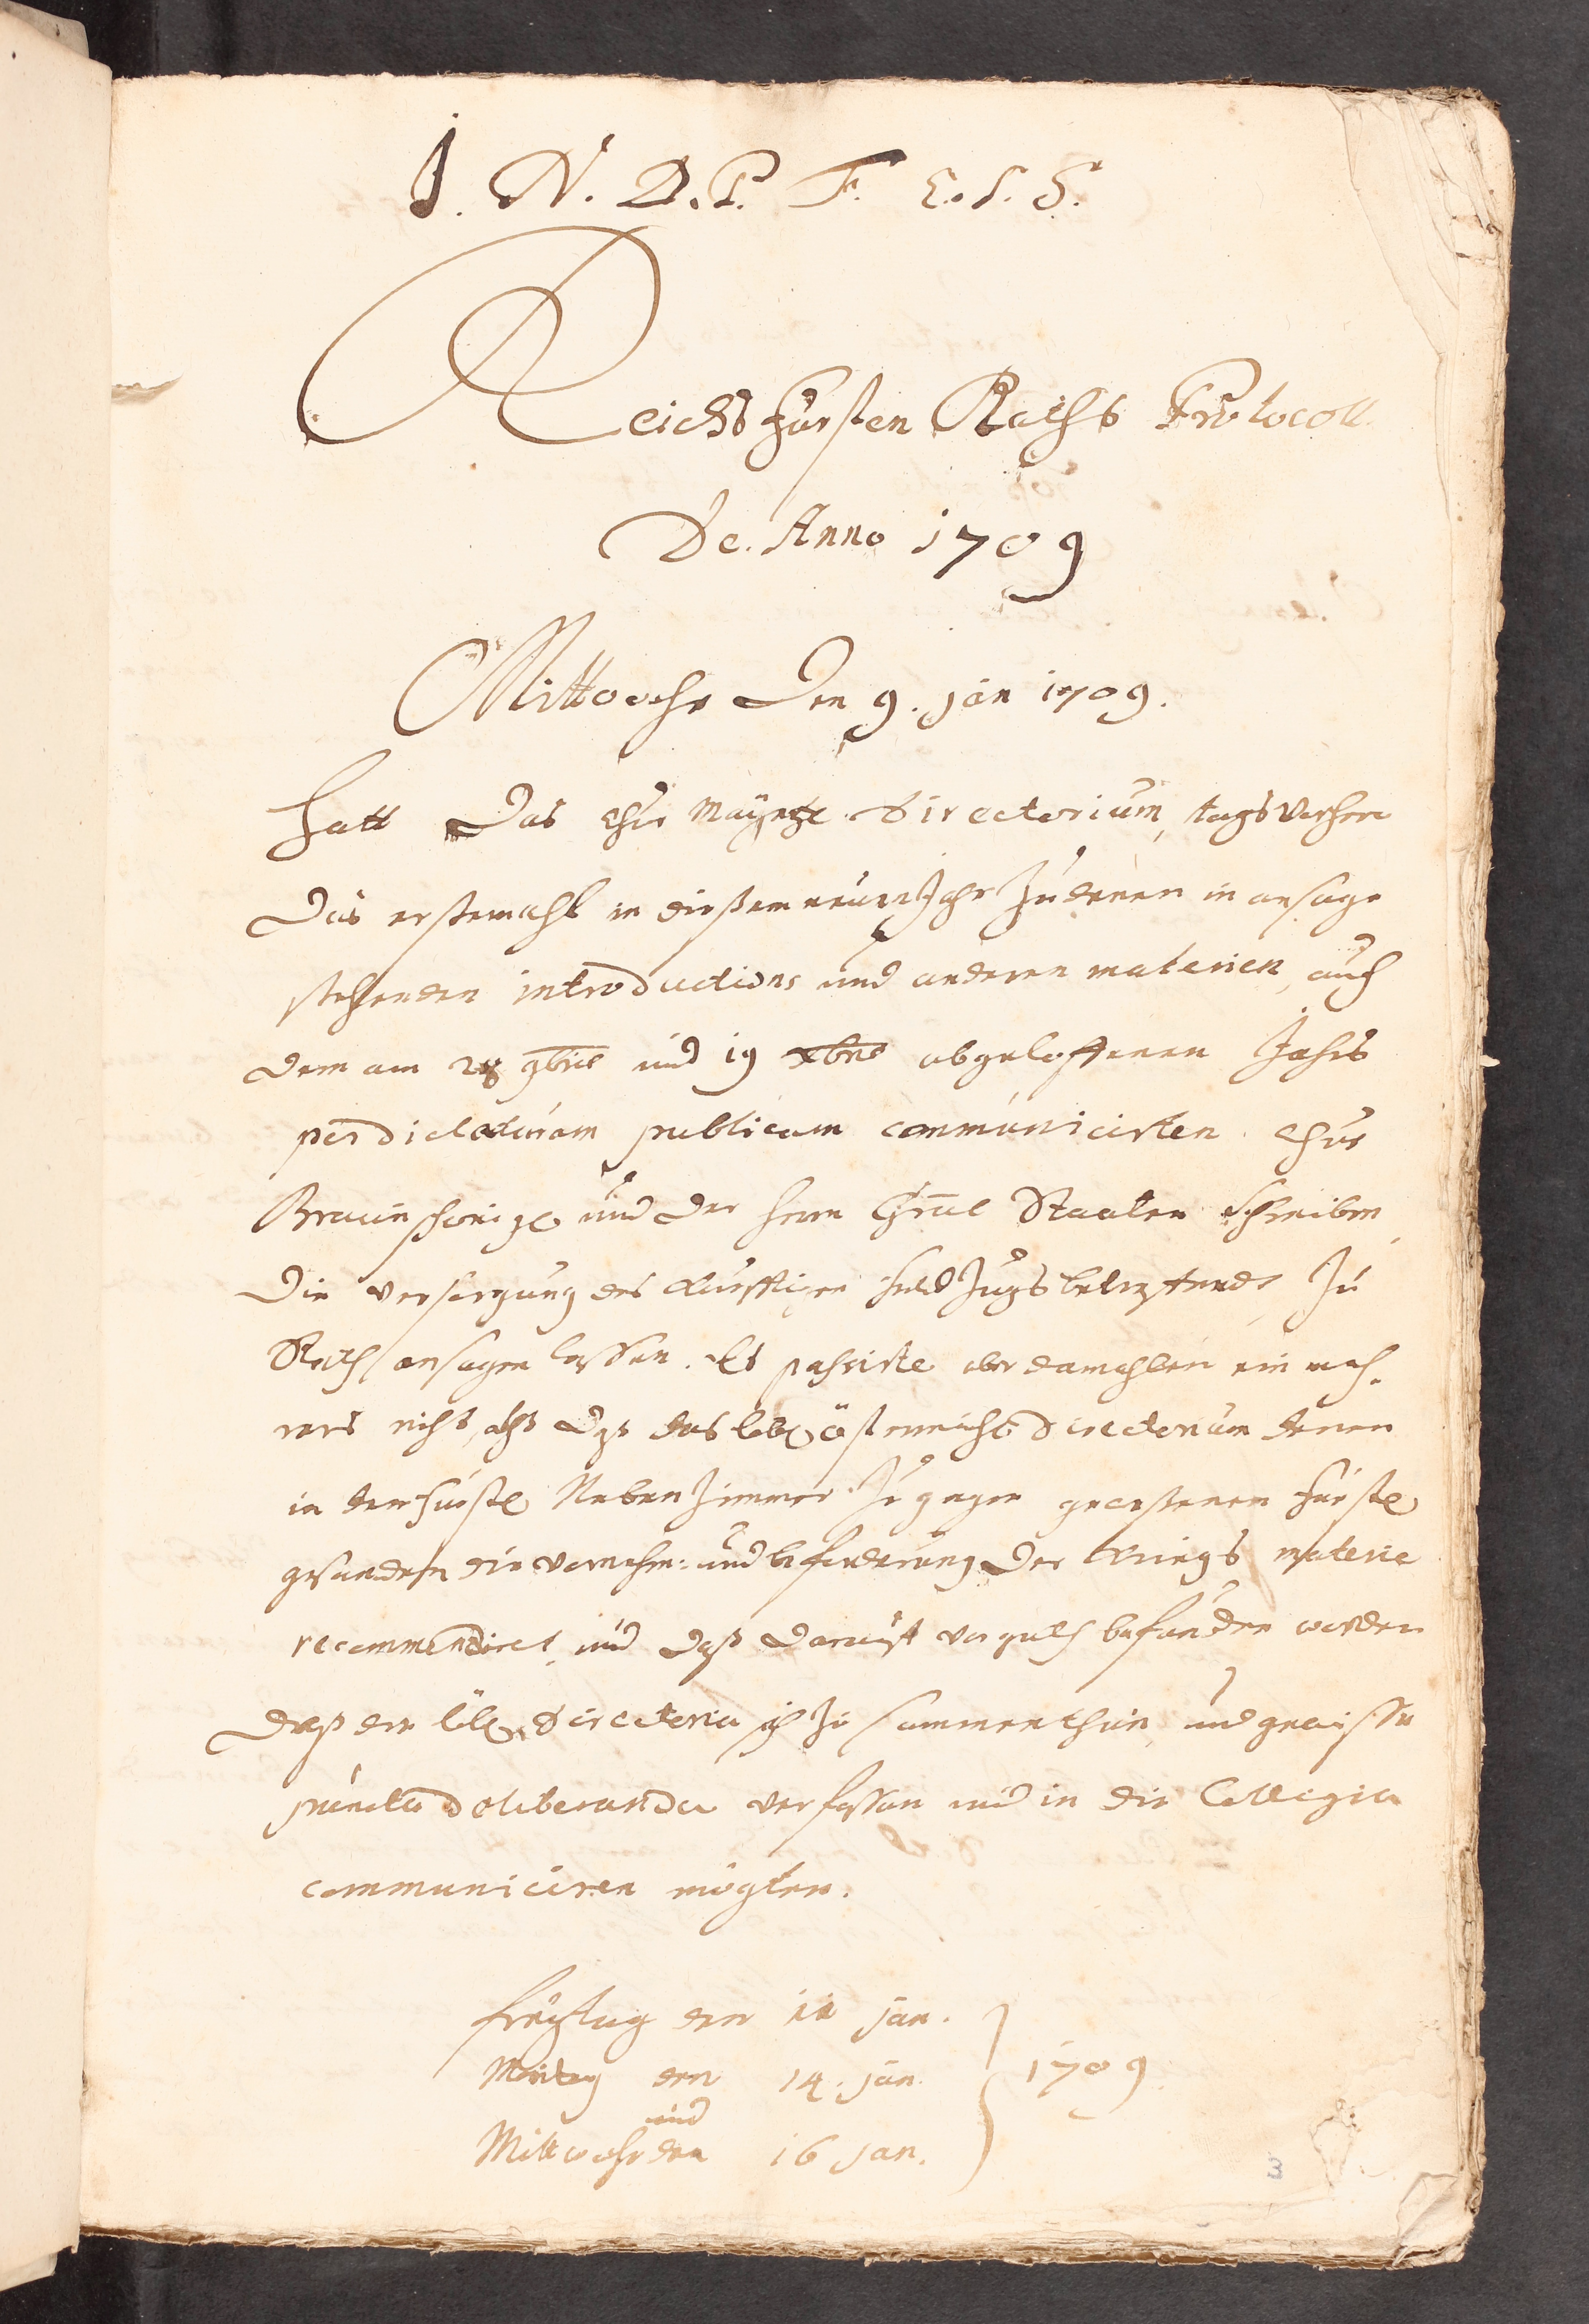 J. N. D. P. F. E. S. S.
Reichs Fürsten Raths Protocoll
De. Anno 1709
Mittwochs Den 9. jan 1709.
Hatt Das Chur Mäyntz. Directorium, tags vorhero
Das erstemahl in dießem neuen Jahr Zu denen in ansage
stehenden introductions und anderen materien, auch
dem am 28 9bris und 19 xbris abgeloffenen Jahrs
per dictaturam publicam communicirten Chur
Braunschweigl und der Herrn Gnrl Staaten schreiben,
Die versorgung des künfftigen feld Zugs betreffende Zu
Rath ansagen lassen. Es passirte aber damahlen ein meh-
rers nicht, alß daß das löbl österreich Directorium denen
in dem fürstl Neben Zimmer Zu gegen geweßenen fürstl
gesandten die vornehm- und beförderung der Kriegs materie
recommendiret, und daß darauf vor guth befunden worden
daß die löbl Directoria sich Zu sammen thun, und gewisse
puncta deliberanda verfassen und in die Collegia
communiciren mögten.
Freytag den 11 jan.
Montag den 14. jan. 1709.
und
Mittwochs den 16 jan.
3